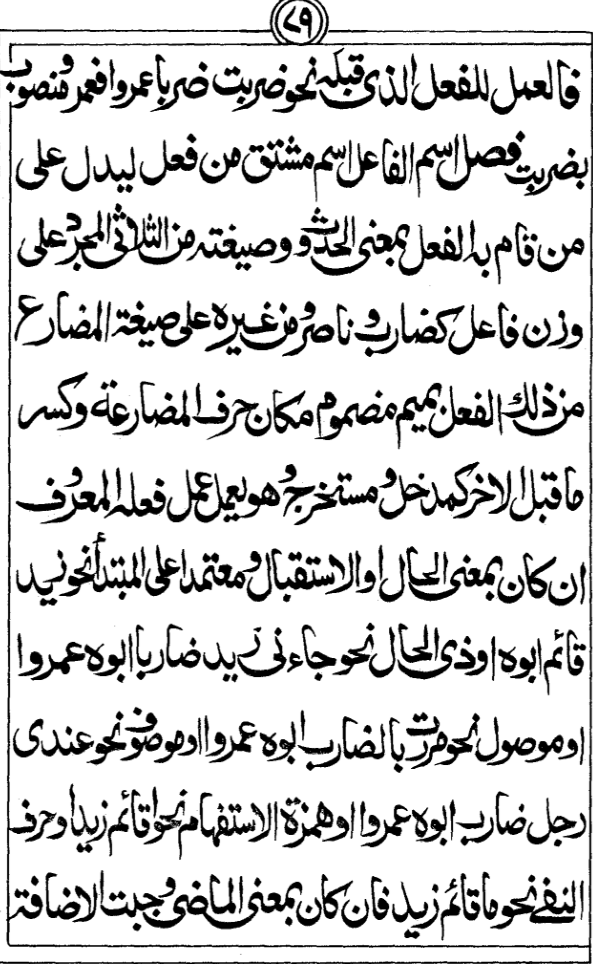 ٧٩
فالعمل للفعل الذى قبله نحو ضربت ضربا عمروا فعمرو منصوب
بضربت فصل اسم الفاعل اسم مشتق من فعل ليدل على
من قام به الفعل بمعنى الحدوث وصيغته من الثلاثى المجرد على
وزن فاعل كضارب وناصر ومن غيره على صيغة المضارع
من ذلك الفعل بميم مضموم مكان حرف المضارعة وكسر
ماقبل الاخر كمدخل ومستخرج وهو يعمل عمل فعله المعروف
ان كان بمعنى الحال او الاستقبال ومعتمدا على المبتدأ نحو زيد
قائم ابوه او ذى الحال نحو جاءنى زيد ضاربا ابوه عمروا
او موصول نحو مررت بالضارب ابوه عمروا او موصوف نحو عندى
رجل ضارب ابوه عمروا او همزة الاستفهام نحو اقائم زيد او حرف
النفى نحو ماقائم زيد فان كان بمعنى الماضى وجبت الاضافة